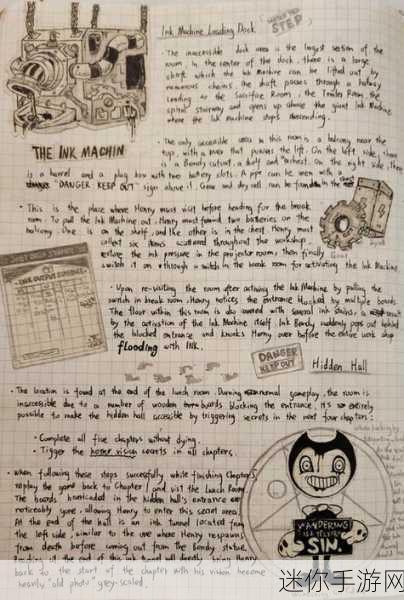 Ink Machine Loading Dock
"WATCH YOUR STEP"
• The inaccessible dock area is the largest section of the
room. In the center of the dock, there is a large
shaft which the Ink Machine can be lifted out by
numerous chains. The shaft passes through a hallway
Leading to the Sacrifice Rooms, the Tendes Room, the
spiral stairway and opens up above the giant Ink Machine
where the Ink Machine stops descending.
THE INK MACHIN
• The only accessible area in this room is a balcony near the
top, with a lever that powers the lift. On the left side, there
is a Bendy cutout, a shelf and a chest. On the right side, there
is a barrel and a plug box with two battery slots. A pipe can be seen with a
"DANGER KEEP OUT" sign above it. Gear and dry cell can be found in the
• This is the place where Henry must visit before heading for the break
room. To pull the Ink Machine out, Henry must found two batteries on the
balcony. One is on the shelf, and the other is in the chest. Henry must
collect six items scattered throughout the workshop,
restore the ink pressure in the projector room, then finally
switch it on through a switch in the break room for activating the Ink Machine
Gear
INK OUTPUT SCHEDULE
• Upon re-visiting the room after activing the Ink Machine by pulling the
switch in break room, Henry notices the entrance blocked by multiple boards
The floor within this room is also covered with several ink stains, a result
by the activation of the Ink Machine itself. Ink Bendy suddenly pops out behind
the blocked entrance and knocks Henry over before the entire work shop
flooding with INK.
DANGER
KEEP OUT
Hidden Hall
• The location is found at the end of the lunch room. During normal gameplay, the room is
inaccessible due to a number of wooden boards blocking the entrance. It's entirely
possible to make the hidden hall accessible by triggering secrets in the next four chapters:
• Complete all five chapters without dying.
• Tigger the secrets in all chapters.
• When following these steps successfully while finishing Chapter 5,
replay the game back to Chapter 1 and visit the Lunch Room
The boards barricaded in the hidden hall's entrance are
noticeably gone, allowing Henry to enter this secret area.
At the end of the hall is an ink tunnel located from
the left side, similar to the one where Henry respawns
from death before coming out from the Bendy statue.
Reaching it at the end of this ink tunnel will directly bring Henry
back to the start of the chapter with his vision become
heavily "old photo" grey-scaled.
WANDERING
IS A TERRIBLE
SIN.
迷你手游网